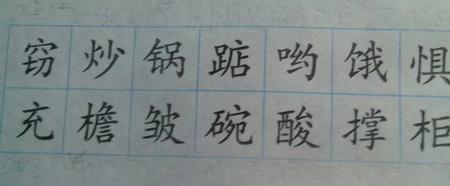 窃炒锅踮哟饿惧
充檐皱碗酸撑柜